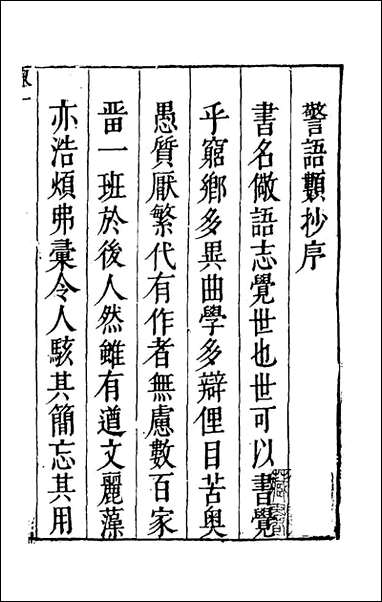 警語類抄序
書名儆語志覺世也世可以書覺
乎窮鄉多異曲學多辯俚目苦奥
愚質厭繁代有作者無慮數百家
畱一班於後人然雖有遒文麗藻
亦浩煩弗彙令人駭其簡忘其用